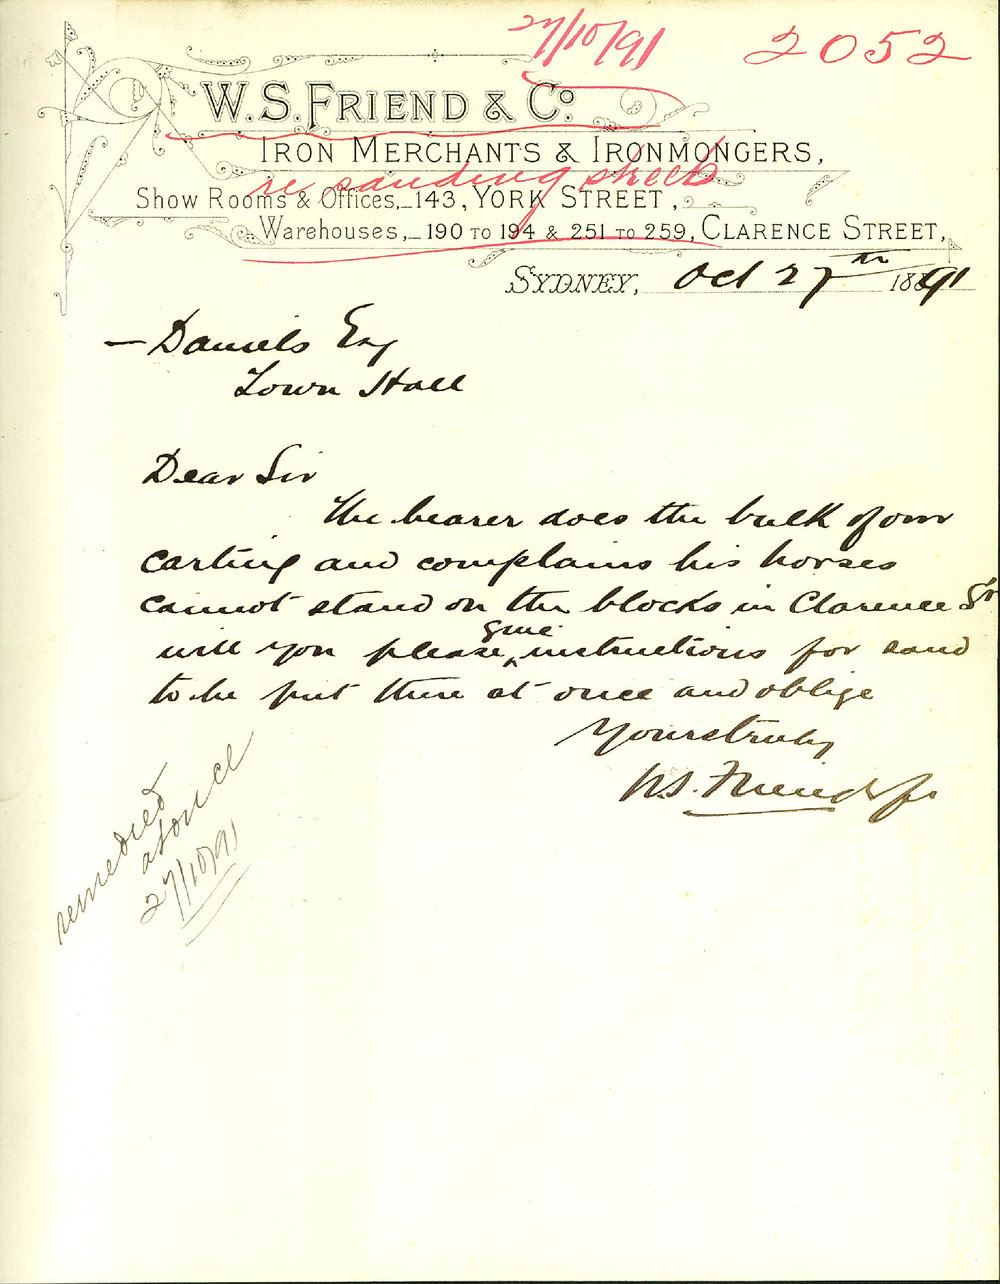 27/10/91 2052
W.S. FRIEND & Co.
IRON MERCHANTS & IRONMONGERS,
re sanding streets
Show Rooms & Offices, 143, YORK STREET,
Warehouses, 190 TO 194 & 251 TO 259, CLARENCE STREET,
SYDNEY, Oct 27th 1891
— Daniels Esq
Town Hall
Dear Sir
The bearer does the bulk of our
carting and complains his horses
cannot stand on the blocks in Clarence St
will you please give instructions for sand
to be put there at once and oblige
Yours truly
W.S. Friend & Co
remedied
at once
27/10/91